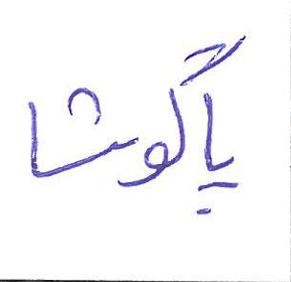 پاگوشا